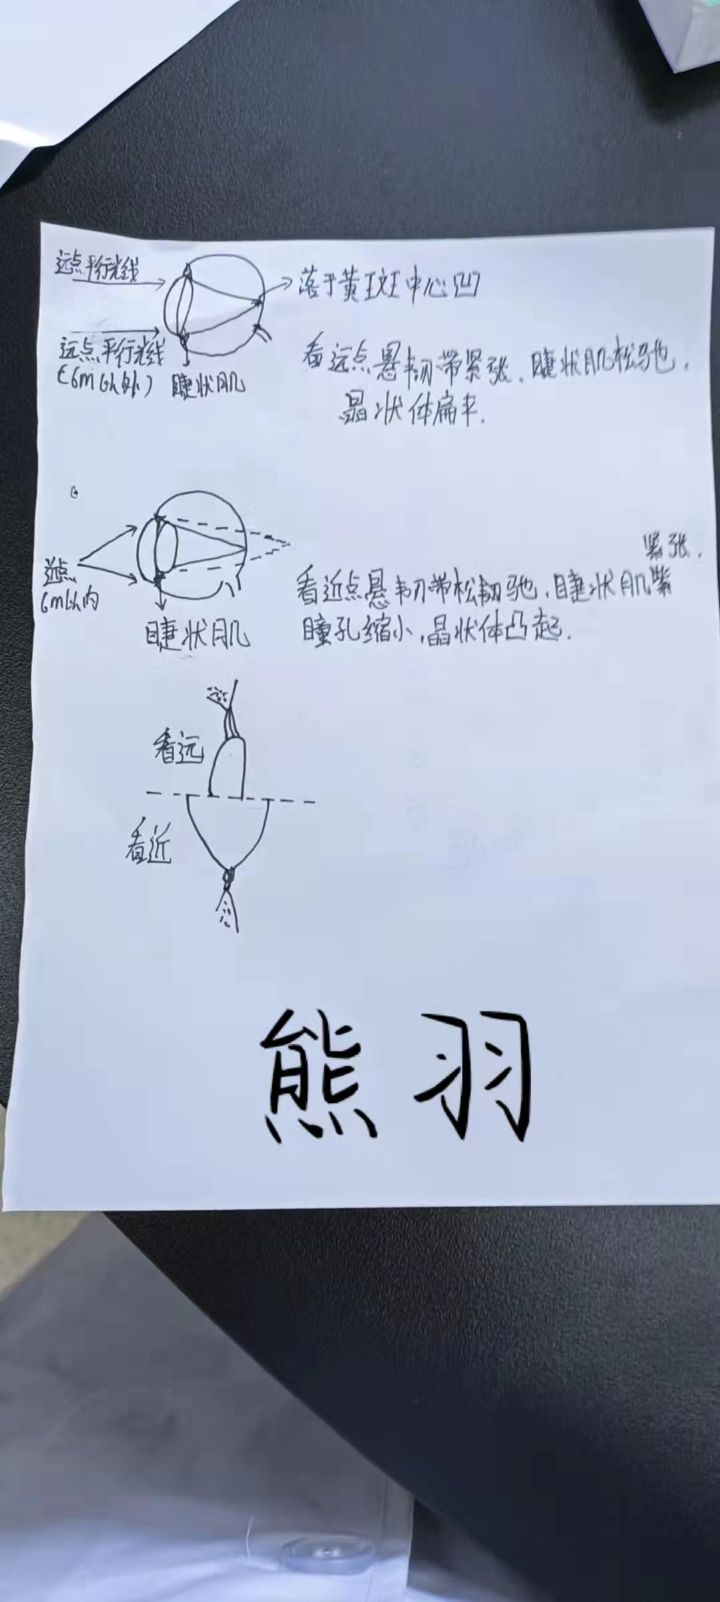 远点平行光线
落于黄斑中心凹
远点平行光线
(6m以外)
睫状肌
看远点悬韧带紧张、睫状肌松弛,
晶状体扁平.
近点
6m以内
睫状肌
紧张.
看近点悬韧带松韧弛、睫状肌紧
瞳孔缩小,晶状体凸起.
看远
看近
熊羽